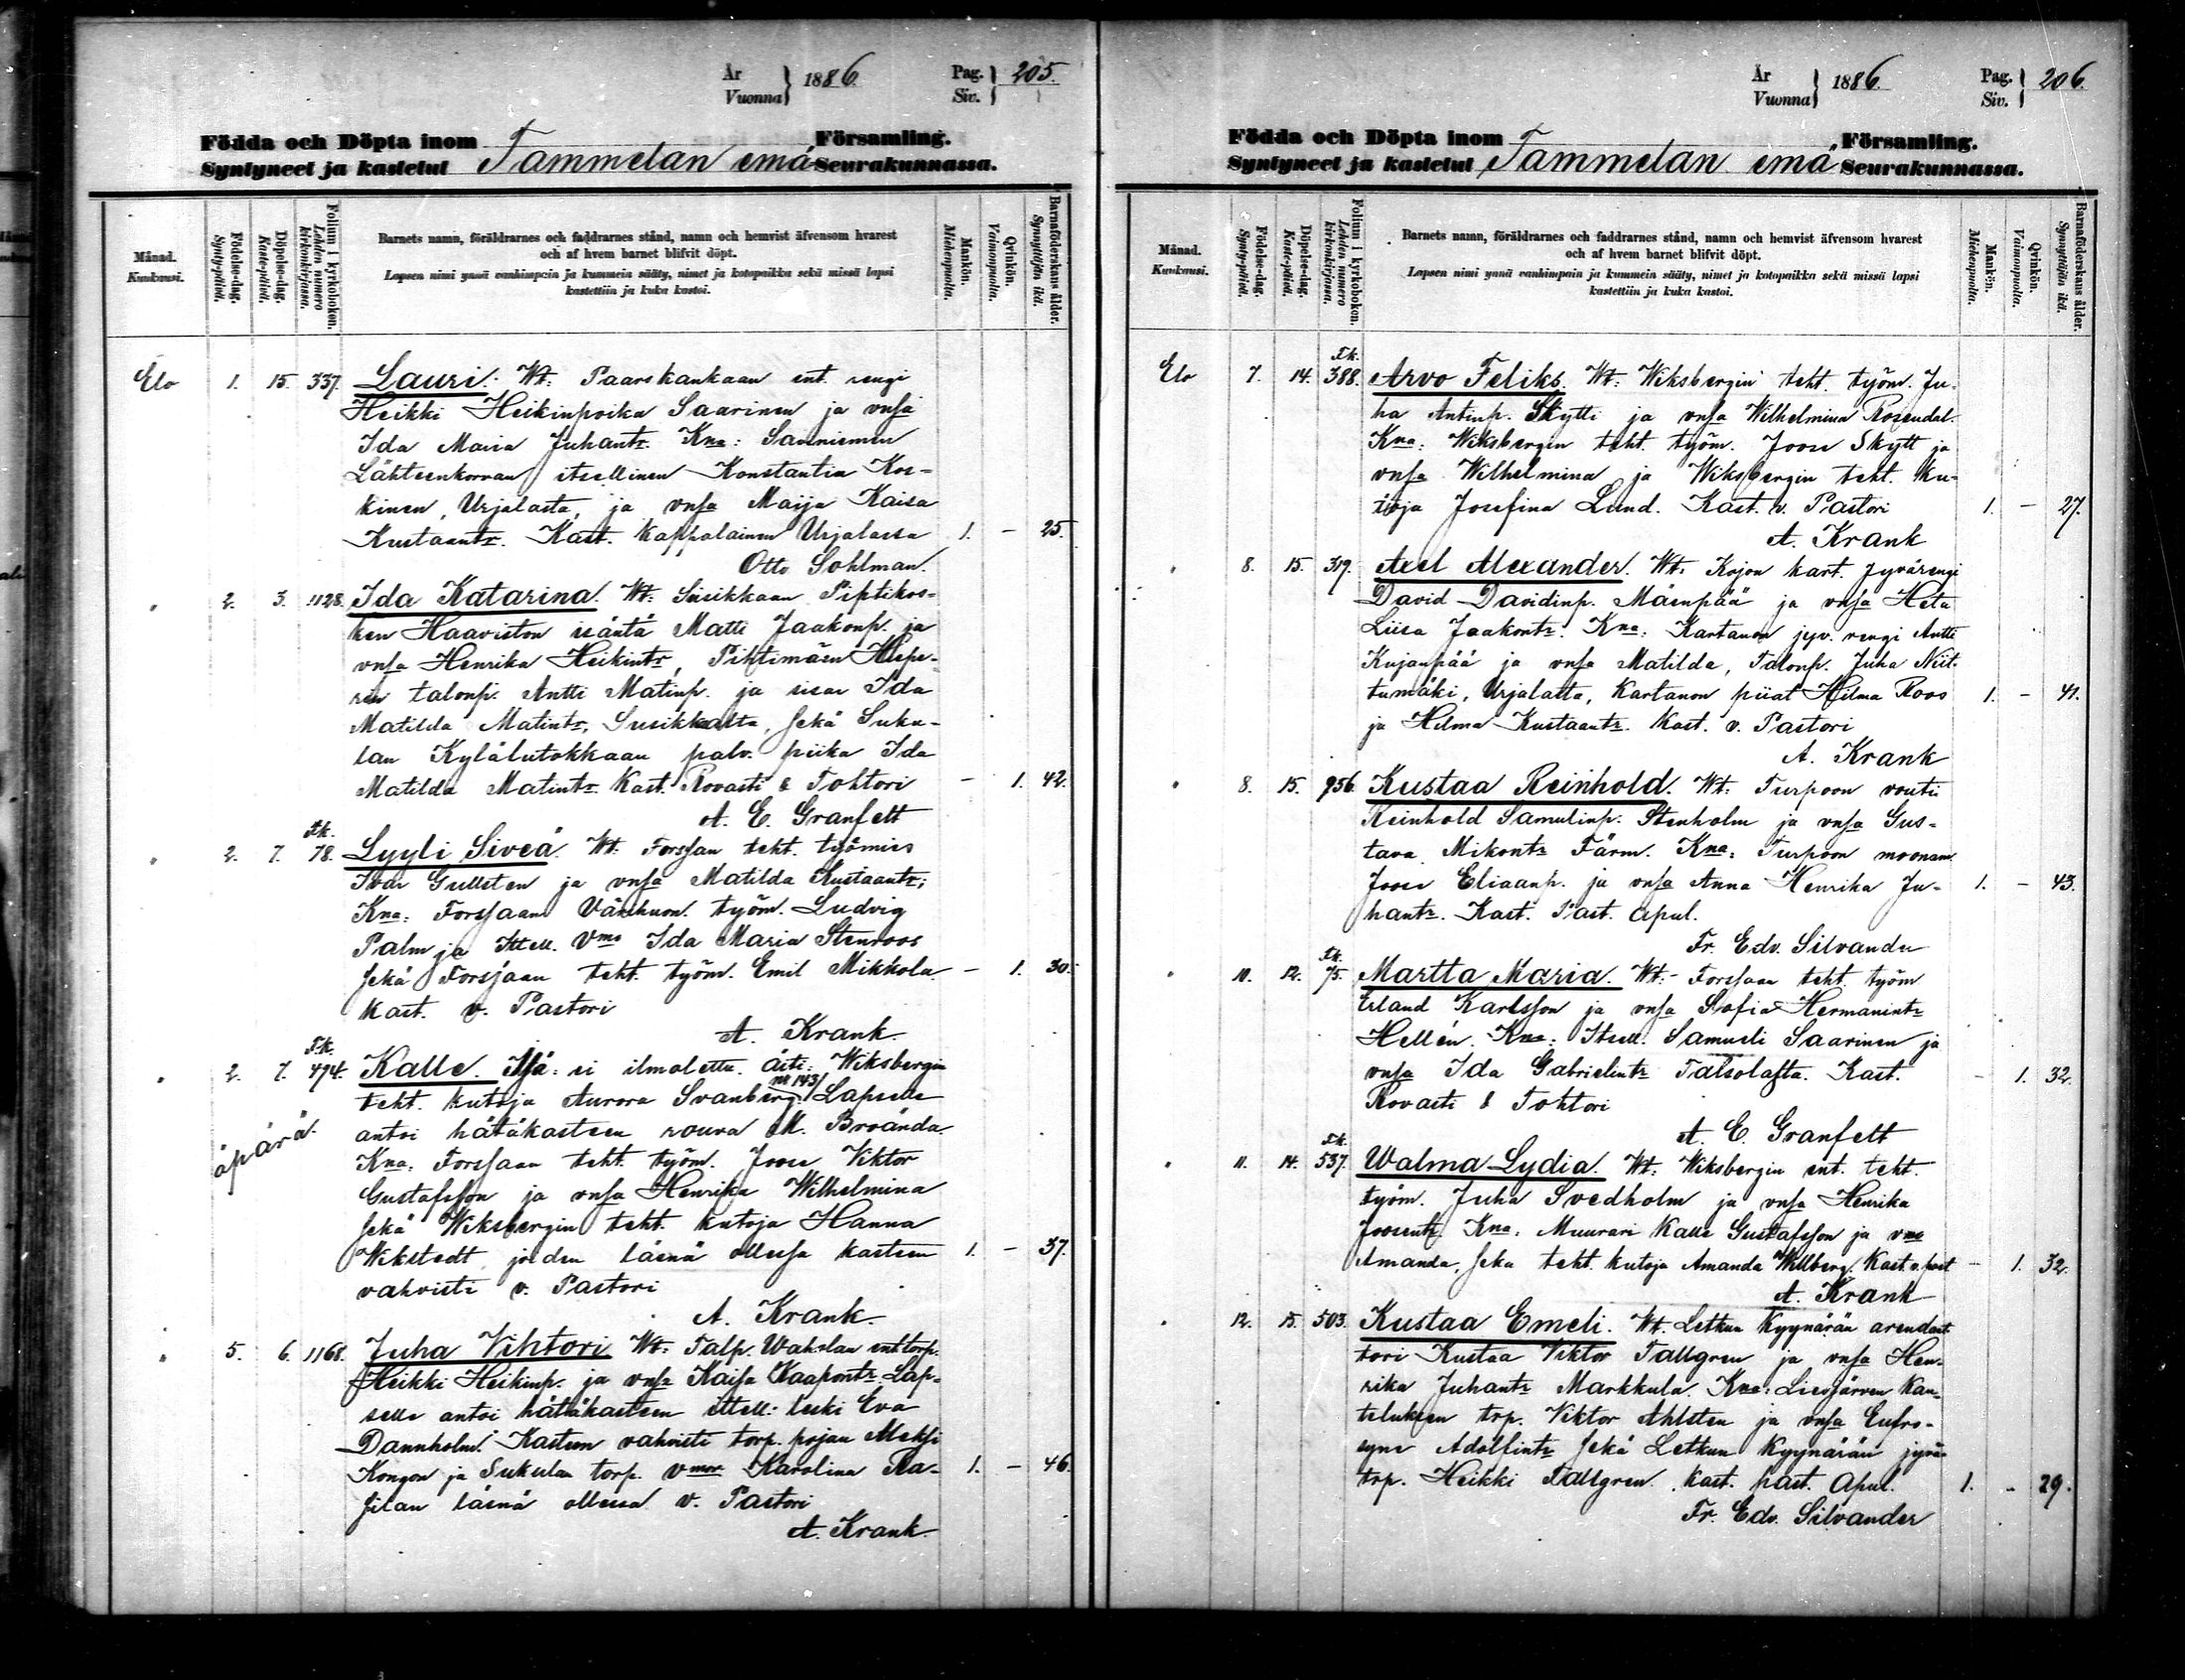 År Vuonna } 1886. Pag. Siv. } 205.
Födda och Döpta inom Församling.
Syntyneet ja kastetut Tammelan emä Seurakunnassa.
Månad. Kuukausi.
Födelse-dag. Synty-päivä.
Döpelse-dag. Kaste-päivä.
Folium i kyrkoboken. Lehden numero kirkonkirjassa.
Barnets namn, föräldrarnes och faddrarnes stånd, namn och hemvist äfvensom hvarest
och af hvem barnet blifvit döpt.
Lapsen nimi ynnä vanhimpain ja kummein sääty, nimet ja kotopaikka sekä missä lapsi
kastettiin ja kuka kastoi.
Mankön. Miehenpuolta.
Qvinkön. Vaimonpuolta.
Barnaföderskans ålder. Synnyttäjän ikä.
Elo 1. 15. 337. Lauri. Wt: Paarskankaan ent. rengi
Heikki Heikinpoika Saarinen ja vnsa
Ida Maria Juhantr. Kna: Sauniemen
Lähteenkorvan itsellinen Konstantin Kos-
kinen, Urjalasta, ja vnsa Maija Kaisa
Kustaantr. Kast. Kappalainen Urjalassa 1. – 25.
Otto Sohlman.
" 2. 3. 1128. Ida Katarina. Wt: Susikkaan
Haaviston isäntä Matti Jaakonp. ja
vnsa Henrika Heikintr,
talonp. Antti Matinp. ja sisar Ida
Matilda Matintr, Susikkaalta, sekä Suku-
lan Kylälutokkaan palv. piika Ida
Matilda Matintr. Kast. Rovasti & Tohtori – 1. 42.
A. E. Granfelt
" 2. 7. Fk. 78. Lyyli Siveä. Wt: Forssan teht. työmies
Ivar Gullsten ja vnsa Matilda Kustaantr;
Kna: Forssaan työm. Ludvig
Palm ja Itsell. Vmo Ida Maria Stenroos
sekä Forssaan teht. työm. Emil Mikkola. – 1. 30.
Kast. v. Pastori
A. Krank.
" 2. 7. Fk. 474. Kalle. Isä: ei ilmoitettu. Äiti: Wiksbergin
teht. kutoja Aurora Svanberg. nr 143/ Lapselle
äpärä.
antoi hätäkasteen rouva M. Broända.
Kna: Forssaan teht. työm. Joose Viktor
Gustafsson ja vnsa Henrika Wilhelmina
sekä Wiksbergin teht. kutoja Hanna
Wikstedt, joiden läsnä ollessa kasteen 1. – 37.
vahvisti v. Pastori
A. Krank.
" 5. 6. 1168. Juha Vihtori. Wt: Talp. ent torp.
Heikki Heikinp. ja vnsa Kaisa Kaapontr. Lap-
selle antoi hätäkasteen itsell: leski Eva
Dannholm. Kasteen vahvisti torp. pojan
Kongon ja Sukulan torp. vmon Karolina Ra- 1. – 46.
silan läsnä ollessa v. Pastori
A. Krank.
År Vuonna } 1886. Pag. Siv. } 206.
Födda och Döpta inom Församling.
Syntyneet ja kastetut Tammelan emä Seurakunnassa.
Månad. Kuukausi.
Födelse-dag. Synty-päivä.
Döpelse-dag. Kaste-päivä.
Folium i kyrkoboken. Lehden numero kirkonkirjassa.
Barnets namn, föräldrarnes och faddrarnes stånd, namn och hemvist äfvensom hvarest
och af hvem barnet blifvit döpt.
Lapsen nimi ynnä vanhimpain ja kummein sääty, nimet ja kotopaikka sekä missä lapsi
kastettiin ja kuka kastoi.
Mankön. Miehenpuolta.
Qvinkön. Vaimonpuolta.
Barnaföderskans ålder. Synnyttäjän ikä.
Elo 7. 14. Fk. 388. Arvo Feliks. Wt: Wiksbergin teht. työm. Ju-
ha Antinp. Skytti ja vnsa Wilhelmina Rosendal.
Kna: Wiksbergin teht. työm. Joose Skytt ja
vnsa Wilhelmina ja Wiksbergin teht. ku-
toja Josefina Lund. Kast. v. Pastori 1. – 27.
A. Krank
" 8. 15. 319. Axel Alexander. Wt: Kojon kart. Jyvärengi
David Davidinp. Mäenpää ja vnsa Heta
Liisa Jaakontr. Kna: Kartanon jyv. rengi Antti
Kujanpää ja vnsa Matilda, Talonp. Juha Niit-
tumäki, Urjalasta, Kartanon piiat Hilma Roos 1. – 41.
ja Hilma Kustaantr. Kast. v. Pastori
A. Krank
" 8. 15. 956. Kustaa Reinhold. Wt: Turpoon vouti
Reinhold Samulinp. Stenholm ja vnsa Gus-
tava Mikontr Färm. Kna: Turpoon moonam.
Joose Eliaanp. ja vnsa Anna Henrika Ju- 1. – 43.
hantr. Kast. Past. apul.
Fr. Edv. Silvander
" 10. 12. Fk. 75. Martta Maria. Wt: Forssaan teht. työm
Erland Karlsson ja vnsa Sofia Hermanintr
Hellén. Kna: Itsell. Samueli Saarinen ja
vnsa Ida Gabrielintr Talsolasta. Kast. – 1. 32.
Rovasti & Tohtori
A. E. Granfelt
" 11. 14. Fk. 537. Walma Lydia. Wt: Wiksbergin ent. teht.
työm. Juha Svedholm ja vnsa Henrika
Joosentr. Kna: Muurari Kalle Gustafsson ja vmo
Amanda, seka teht. kutoja Amanda Willberg. Kast. v. past – 1. 32.
A. Krank
" 12. 15. 503. Kustaa Emeli. Wt. Letkun Kyynärän arendaat-
tori Kustaa Viktor Tallgren ja vnsa Hen-
rika Juhantr Markkula. Kna: Liesjärven Kan-
teluksen trp. Viktor Ahlsten ja vnsa Eufro-
syne Adolfintr sekä Letkun Kyynärän jyvä-
trp. Heikki Tallgren. Kast. past. Apul. 1. - 29.
Fr. Edv. Silvander